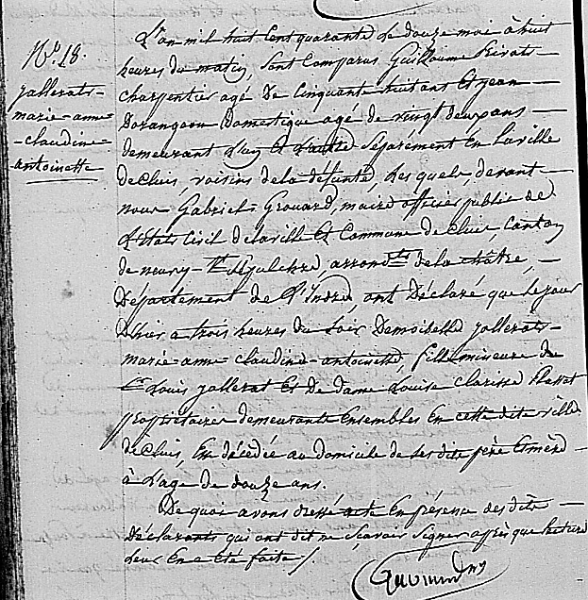 N.° 18.
jallerats-
marie-anne-
-claudine-
antoinette
L'an mil huit cent quarante le douze mai à huit
heures du matin, sont comparus Guillaume Rivat-
charpentier agé de cinquante huit ans et jean
domestique agé de vingt deux ans
demeurant l'un et l'autre séparément en la ville
de cluis, voisins de la défunte, les quels, devant
nous Gabriel Grouard, maire officier public de
l'état civil de la ville et commune de cluis, canton
de neuvy-St. Sépulchre, arrondts. de la châtre,
Département de l'Indre, ont déclaré que le jour
d'hier a trois heures du soir Demoiselle jallerats-
marie-anne claudine-antoinette, fille mineure de
Sr. Louis jallerat et de dame Louise Clarisse
propriétaires demeurants ensembles en cette dite ville
de cluis, est décédée au domicile de ses dits père et mère-
à l'age de douze ans.
De quoi avons dressé acte en présence des dits
déclarants qui ont dit ne sçavoir signer après que lecture
leur en a été faite /.
Grouard